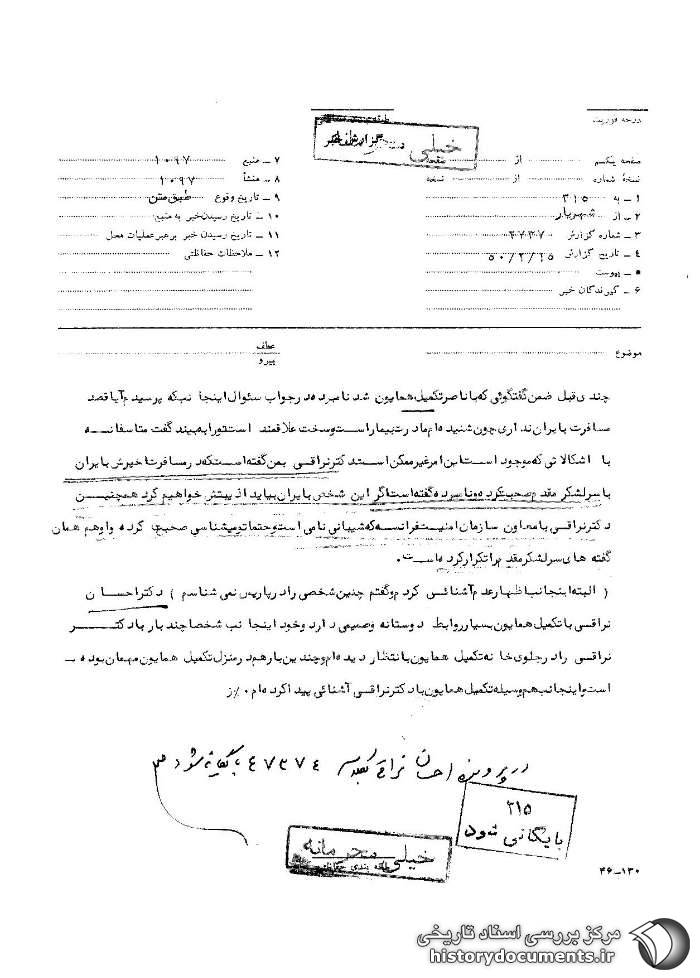 درجه فوریت
طبقه بندی حفاظتی
خیلی
صفحه یکم از صفحه
نسخهٔ شماره از نسخه
۱ـ به ۳۱۵
۲ـ از شهریار
۳ـ شماره گزارش
۴ـ تاریخ گزارش ۵۰/۲/۱۵
۵ـ پیوست
۶ـ گیرندگان خبر
۷ـ منبع ۱۰۹۷
۸ـ منشأ ۱۰۹۷
۹ـ تاریخ وقوع طبق متن
۱۰ـ تاریخ رسیدن خبر به منبع
۱۱ـ تاریخ رسیدن خبر برهبر عملیات محل
۱۲ـ ملاحظات حفاظتی
موضوع
عطف
پیرو
چندی قبل ضمن گفتگوئی که با ناصر تکمیل همایون شد نامبرده در جواب سئوال اینجانب که پرسیدم آیا قصد
مسافرت بایران نداری چون شنیده ام مادرت بیمار است و سخت علاقمند است تو را به بیند گفت متاسفانه
با اشکالاتی که موجود است این امر غیر ممکن است دکتر نراقی بمن گفته است که در مسافرت اخیرش بایران
با سرلشکر مقدم صحبت کرده و نامبرده گفته است اگر این شخص بایران بیاید اذیتش خواهیم کرد همچنین
دکتر نراقی با معاون سازمان امنیت فرانسه که شیبانی نامی است و حتما تو میشناسی صحبت کرده و او هم همان
گفته های سرلشکر مقدم را تکرار کرده است.
( البته اینجانب اظهار عدم آشنائی کردم و گفتم چنین شخصی را در پاریس نمی شناسم ) دکتر احسان
نراقی با تکمیل همایون بسیار روابط دوستانه و صمیمی دارد و خود اینجانب شخصا چند بار با دکتر
نراقی را در جلوی خانه تکمیل همایون بانتظار دیده ام و چندین بار هم در منزل تکمیل همایون مهمان بوده
است و اینجانب هم وسیله تکمیل همایون با دکتر نراقی آشنائی پیدا کرده ام
در پرونده احسان نراقی بکلاسه ۴۷۳۷۴ بایگانی شود
۳۱۵
بایگانی شود
خیلی محرمانه
طبقه بندی حفاظتی
۴۶ـ۱۳۰
مرکز بررسی اسناد تاریخی
historydocuments.ir